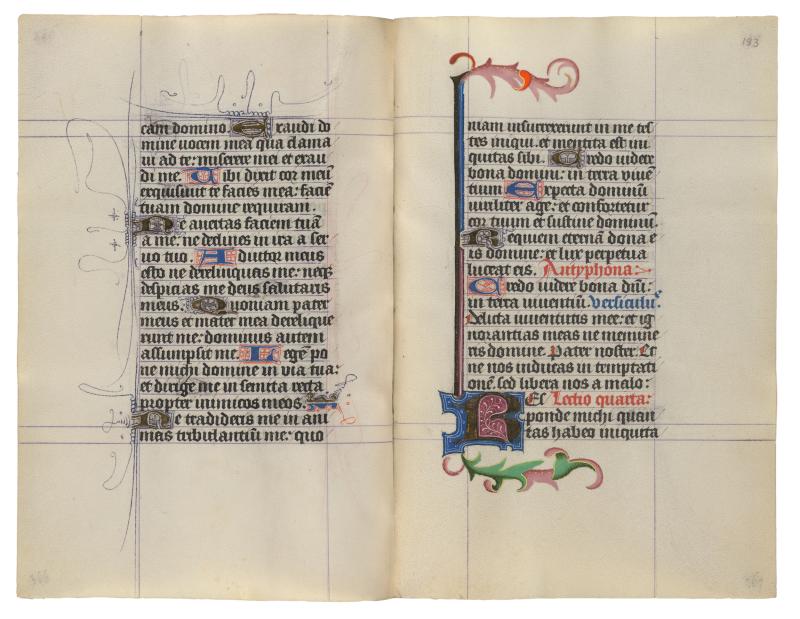 cam domino. Exaudi do
mine uocem mea qua clama
ui ad te: miserere mei et exau
di me. Tibi dixit cor meū
exquisiuit te facies mea: faciē
tuam domine requiram.
Ne auertas faciem tuā
a me: ne declines in ira a ser
uo tuo. Adiutor meus
esto ne derelinquas me: neq
despicias me deus salutaris
meus. Quoniam pater
meus et mater mea derelique
runt me: dominus autem
assumpsit me. Legē po
ne michi domine in via tua:
et dirige me in semita recta
propter inimicos meos.
Ne tradideris me in ani
mas tribulantiū me: quo
193
niam insurrexerunt in me tes
tes iniqui. et mentita est ini
quitas sibi. Credo uidere
bona domini: in terra viuē
tium. Expecta dominū
uiriliter age: et confortetur
cor tuum et sustine dominū.
Requiem eternā dona e
is domine: et lux perpetua
luceat eis. Antyphona:
Credo uidere bona dn̄i:
in terra uiuentiū. versiculus
Delicta iuuentutis mee: et ig
norantias meas ne memine
ris domine. Pater noster. Et
ne nos inducas in temptati
onē. sed libera nos a malo:
Res Lectio quarta:
ponde michi quan
tas habeo iniquita
366
367